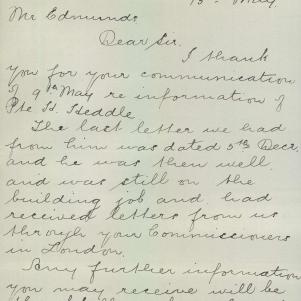 15th May
Mr Edmunds
Dear Sir.
I thank
you for your communication
of 9th May re information of
Pte H. Heddle
The last letter we had
from him was dated 5th Decr.
and he was then well.
and was still on the
building job and had
received letters from us
through your Commissioners
in London.
Any further information
you may receive will be